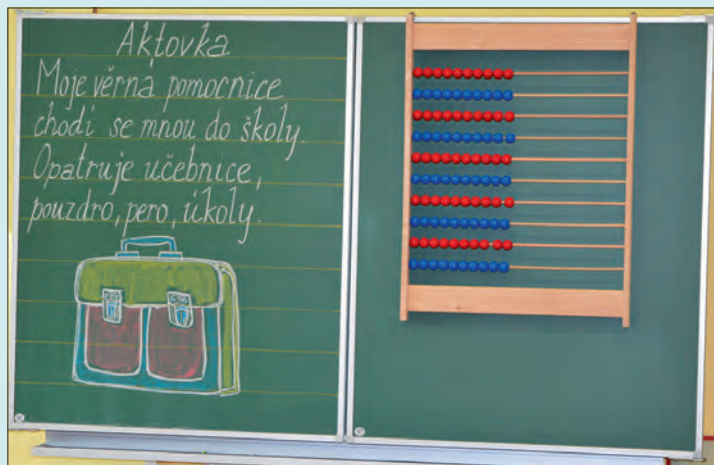 Aktovka
Moje věrná pomocnice
chodí se mnou do školy.
Opatruje učebnice,
pouzdro, pero, úkoly.